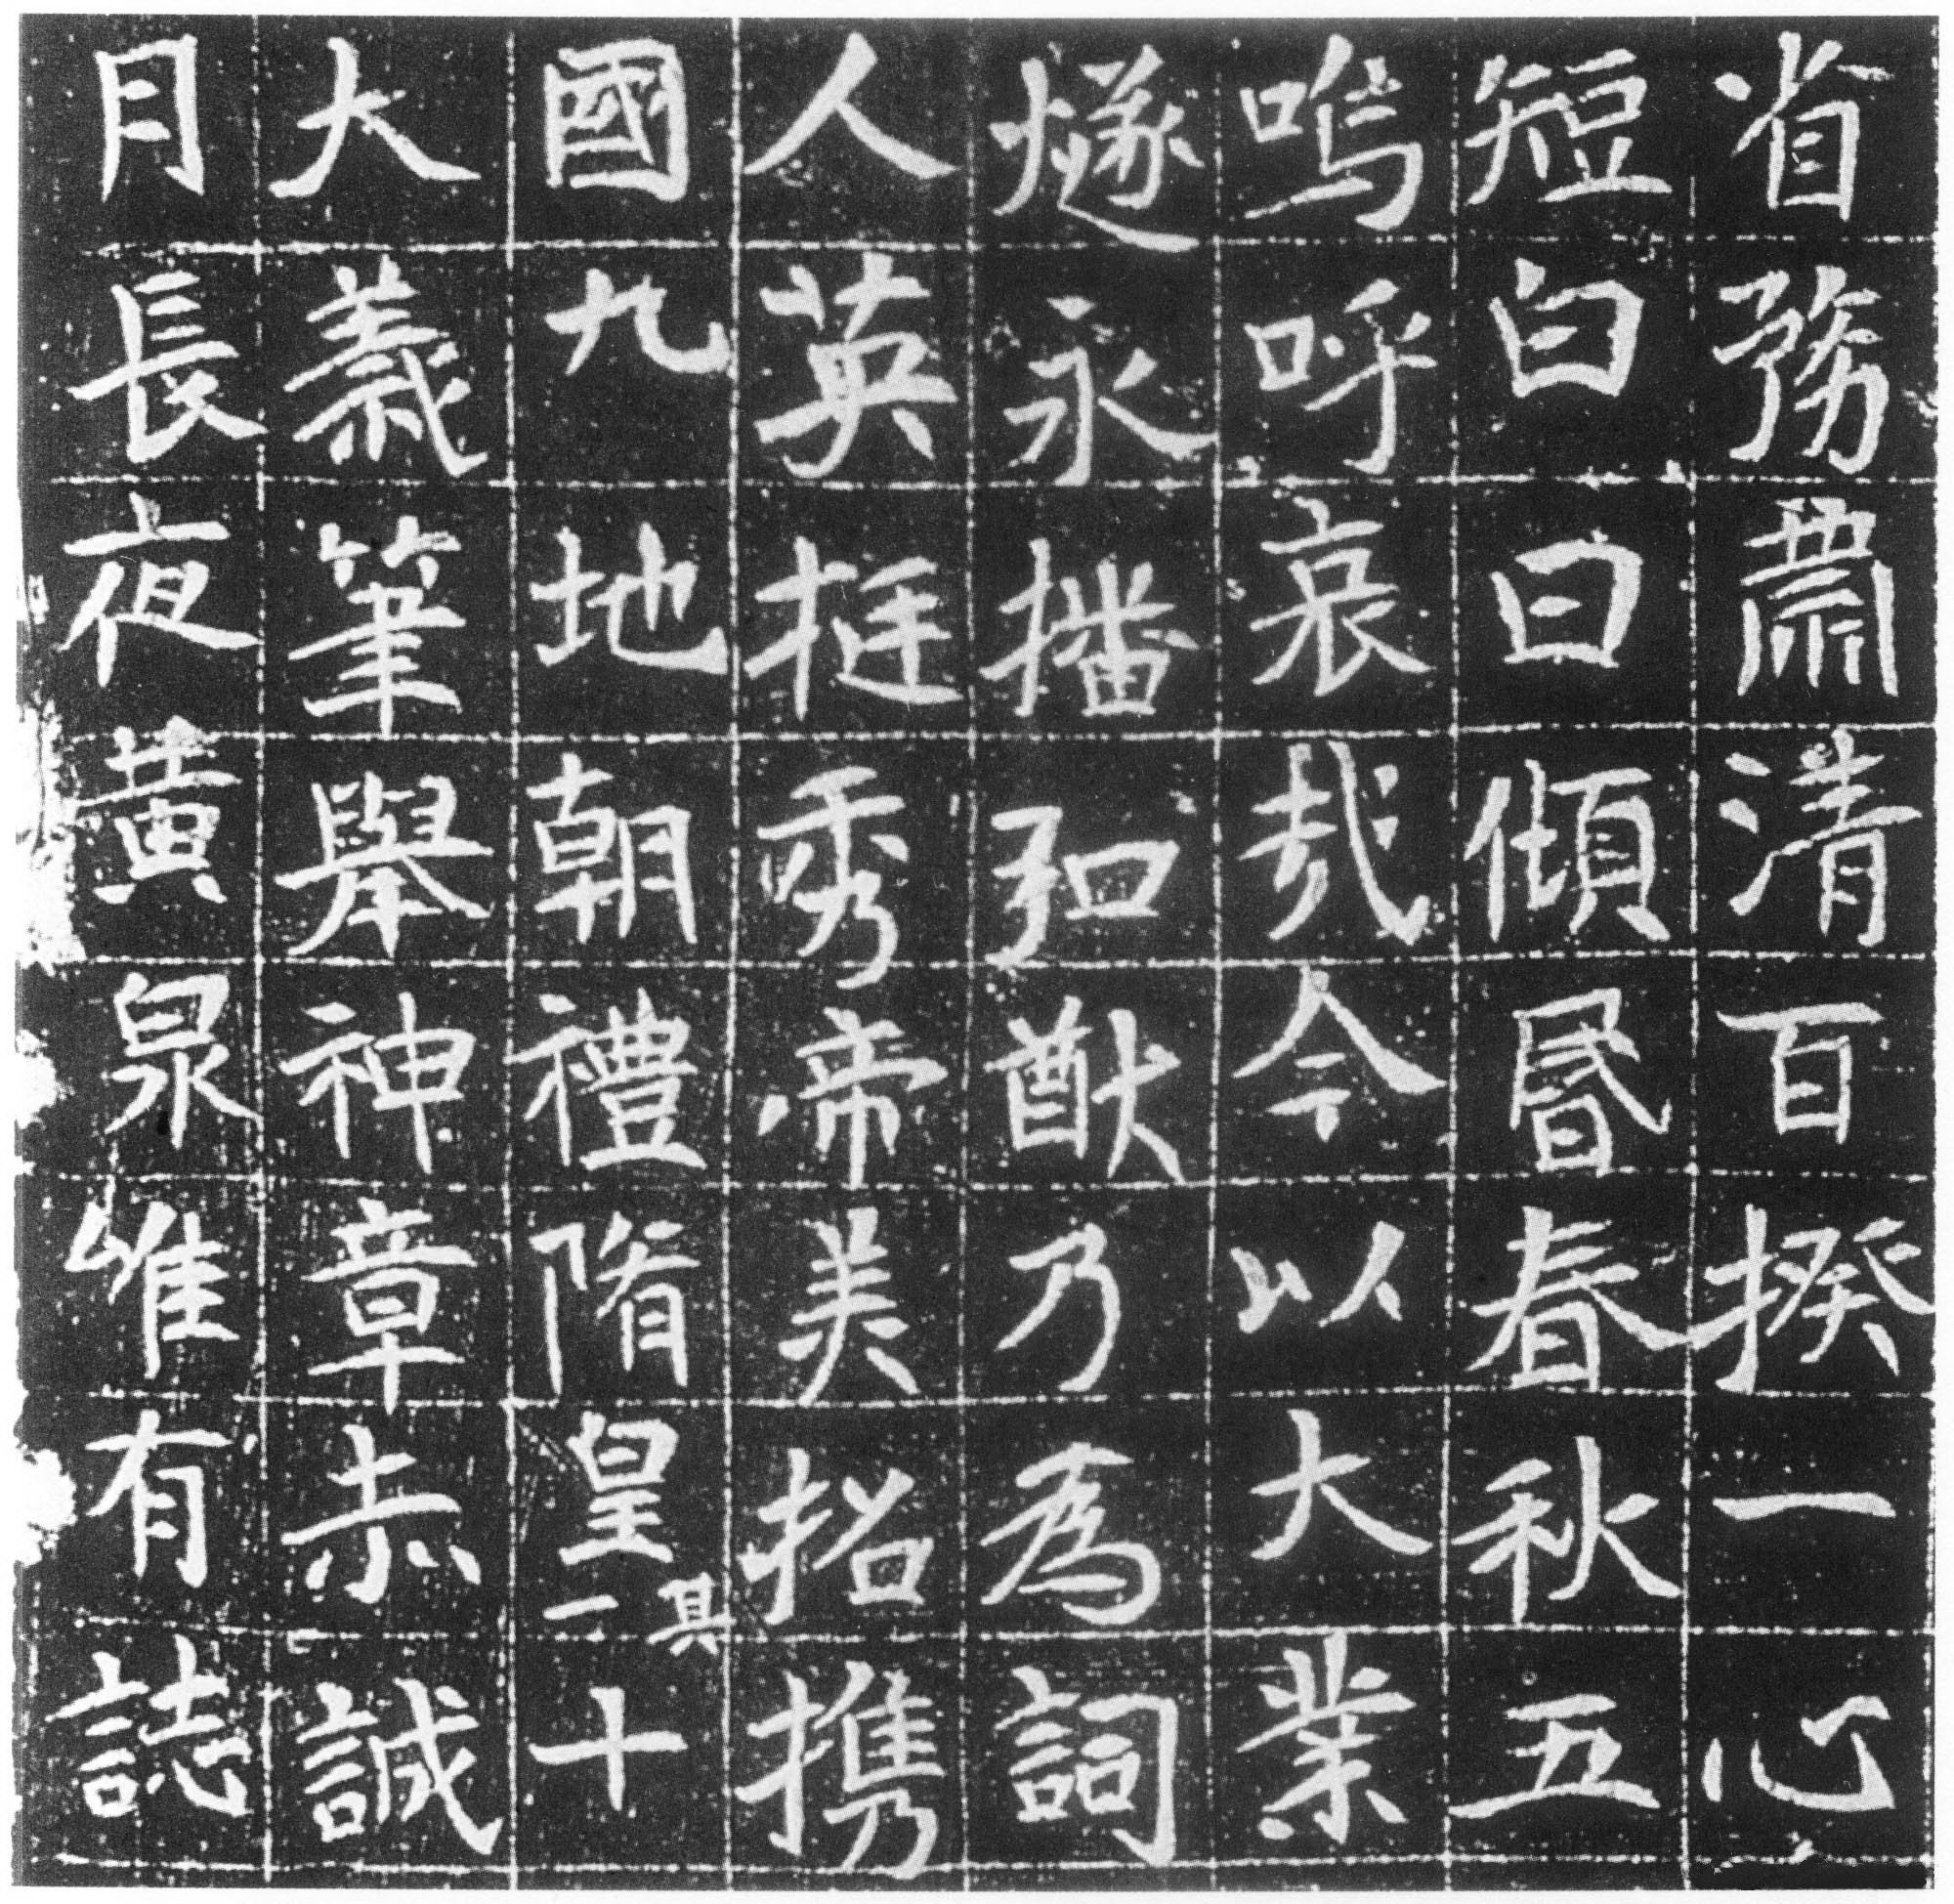 省務肅清百揆一心
短白日傾昬春秋五
嗚呼哀哉今以大業
燧永播弘猷乃為詞
人英挺秀帝美招携
國九地朝禮隋皇其一十
大義筆舉神章赤誠
月長夜黃泉唯有誌